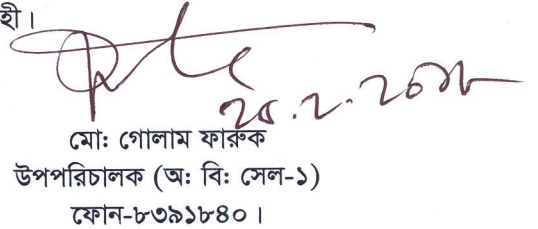 হী।
মো: গোলাম ফারুক
উপপরিচালক (অ: বি: সেল-১)
ফোন-৮৩৯১৮৪০।